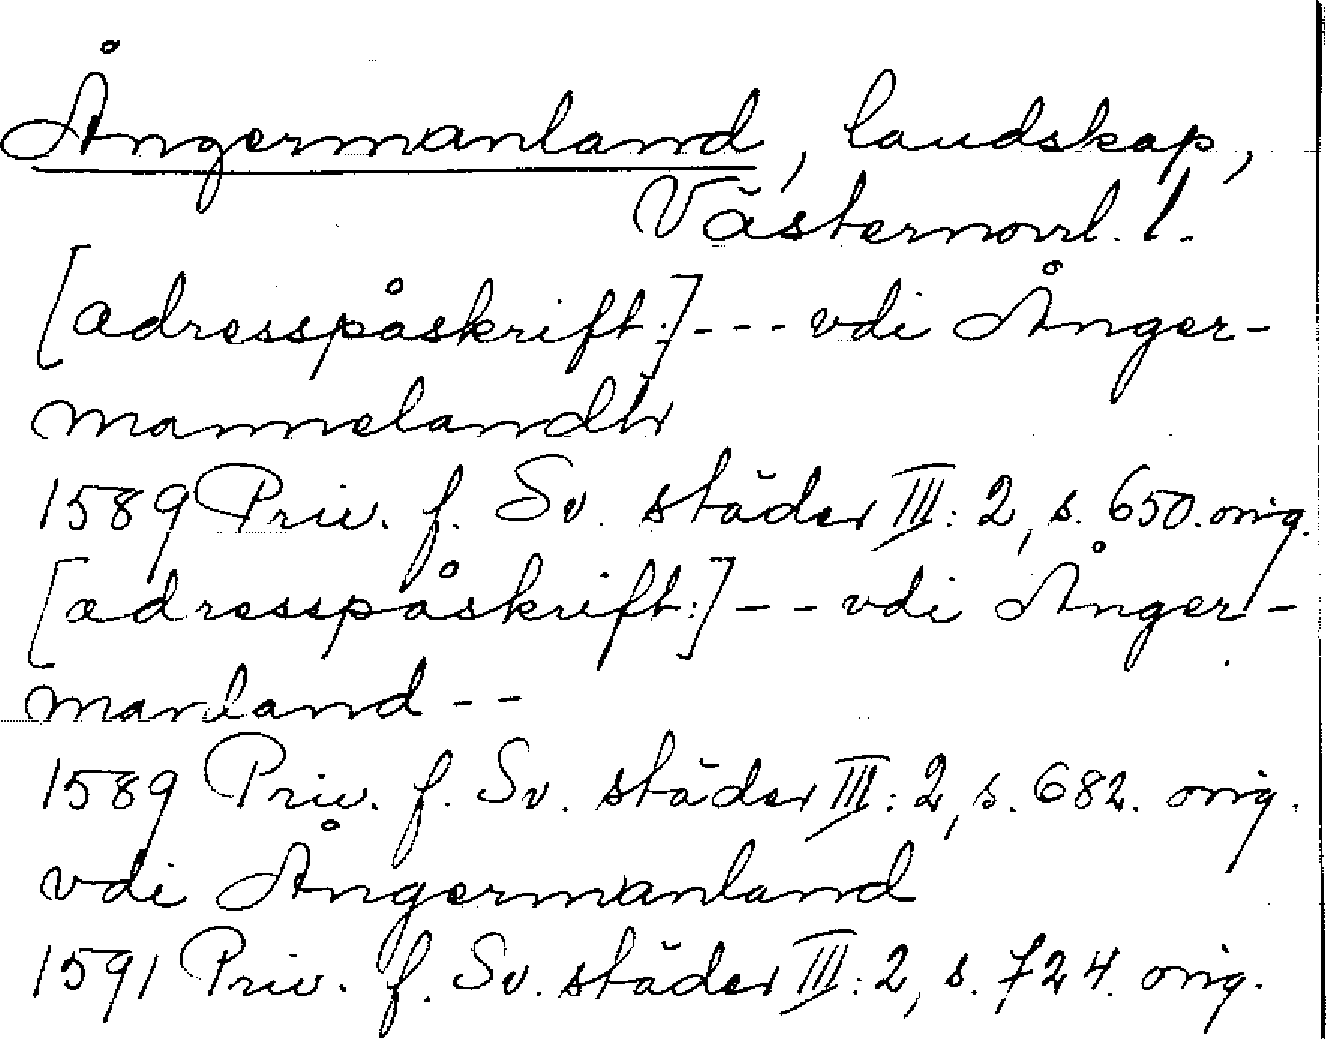 Ångermanland, landskap,
Västernorrl. l.
[adresspåskrift:] - - - vdi Ånger-
mannelandh
1589 Priv. f. Sv. städer III: 2, s. 650. orig.
[adresspåskrift:] - - vdi Ånger-
manland - -
1589 Priv. f. Sv. städer III: 2, s. 682. orig.
vdi Ångermanland
1591 Priv. f. Sv. städer III: 2, s. 724. orig.